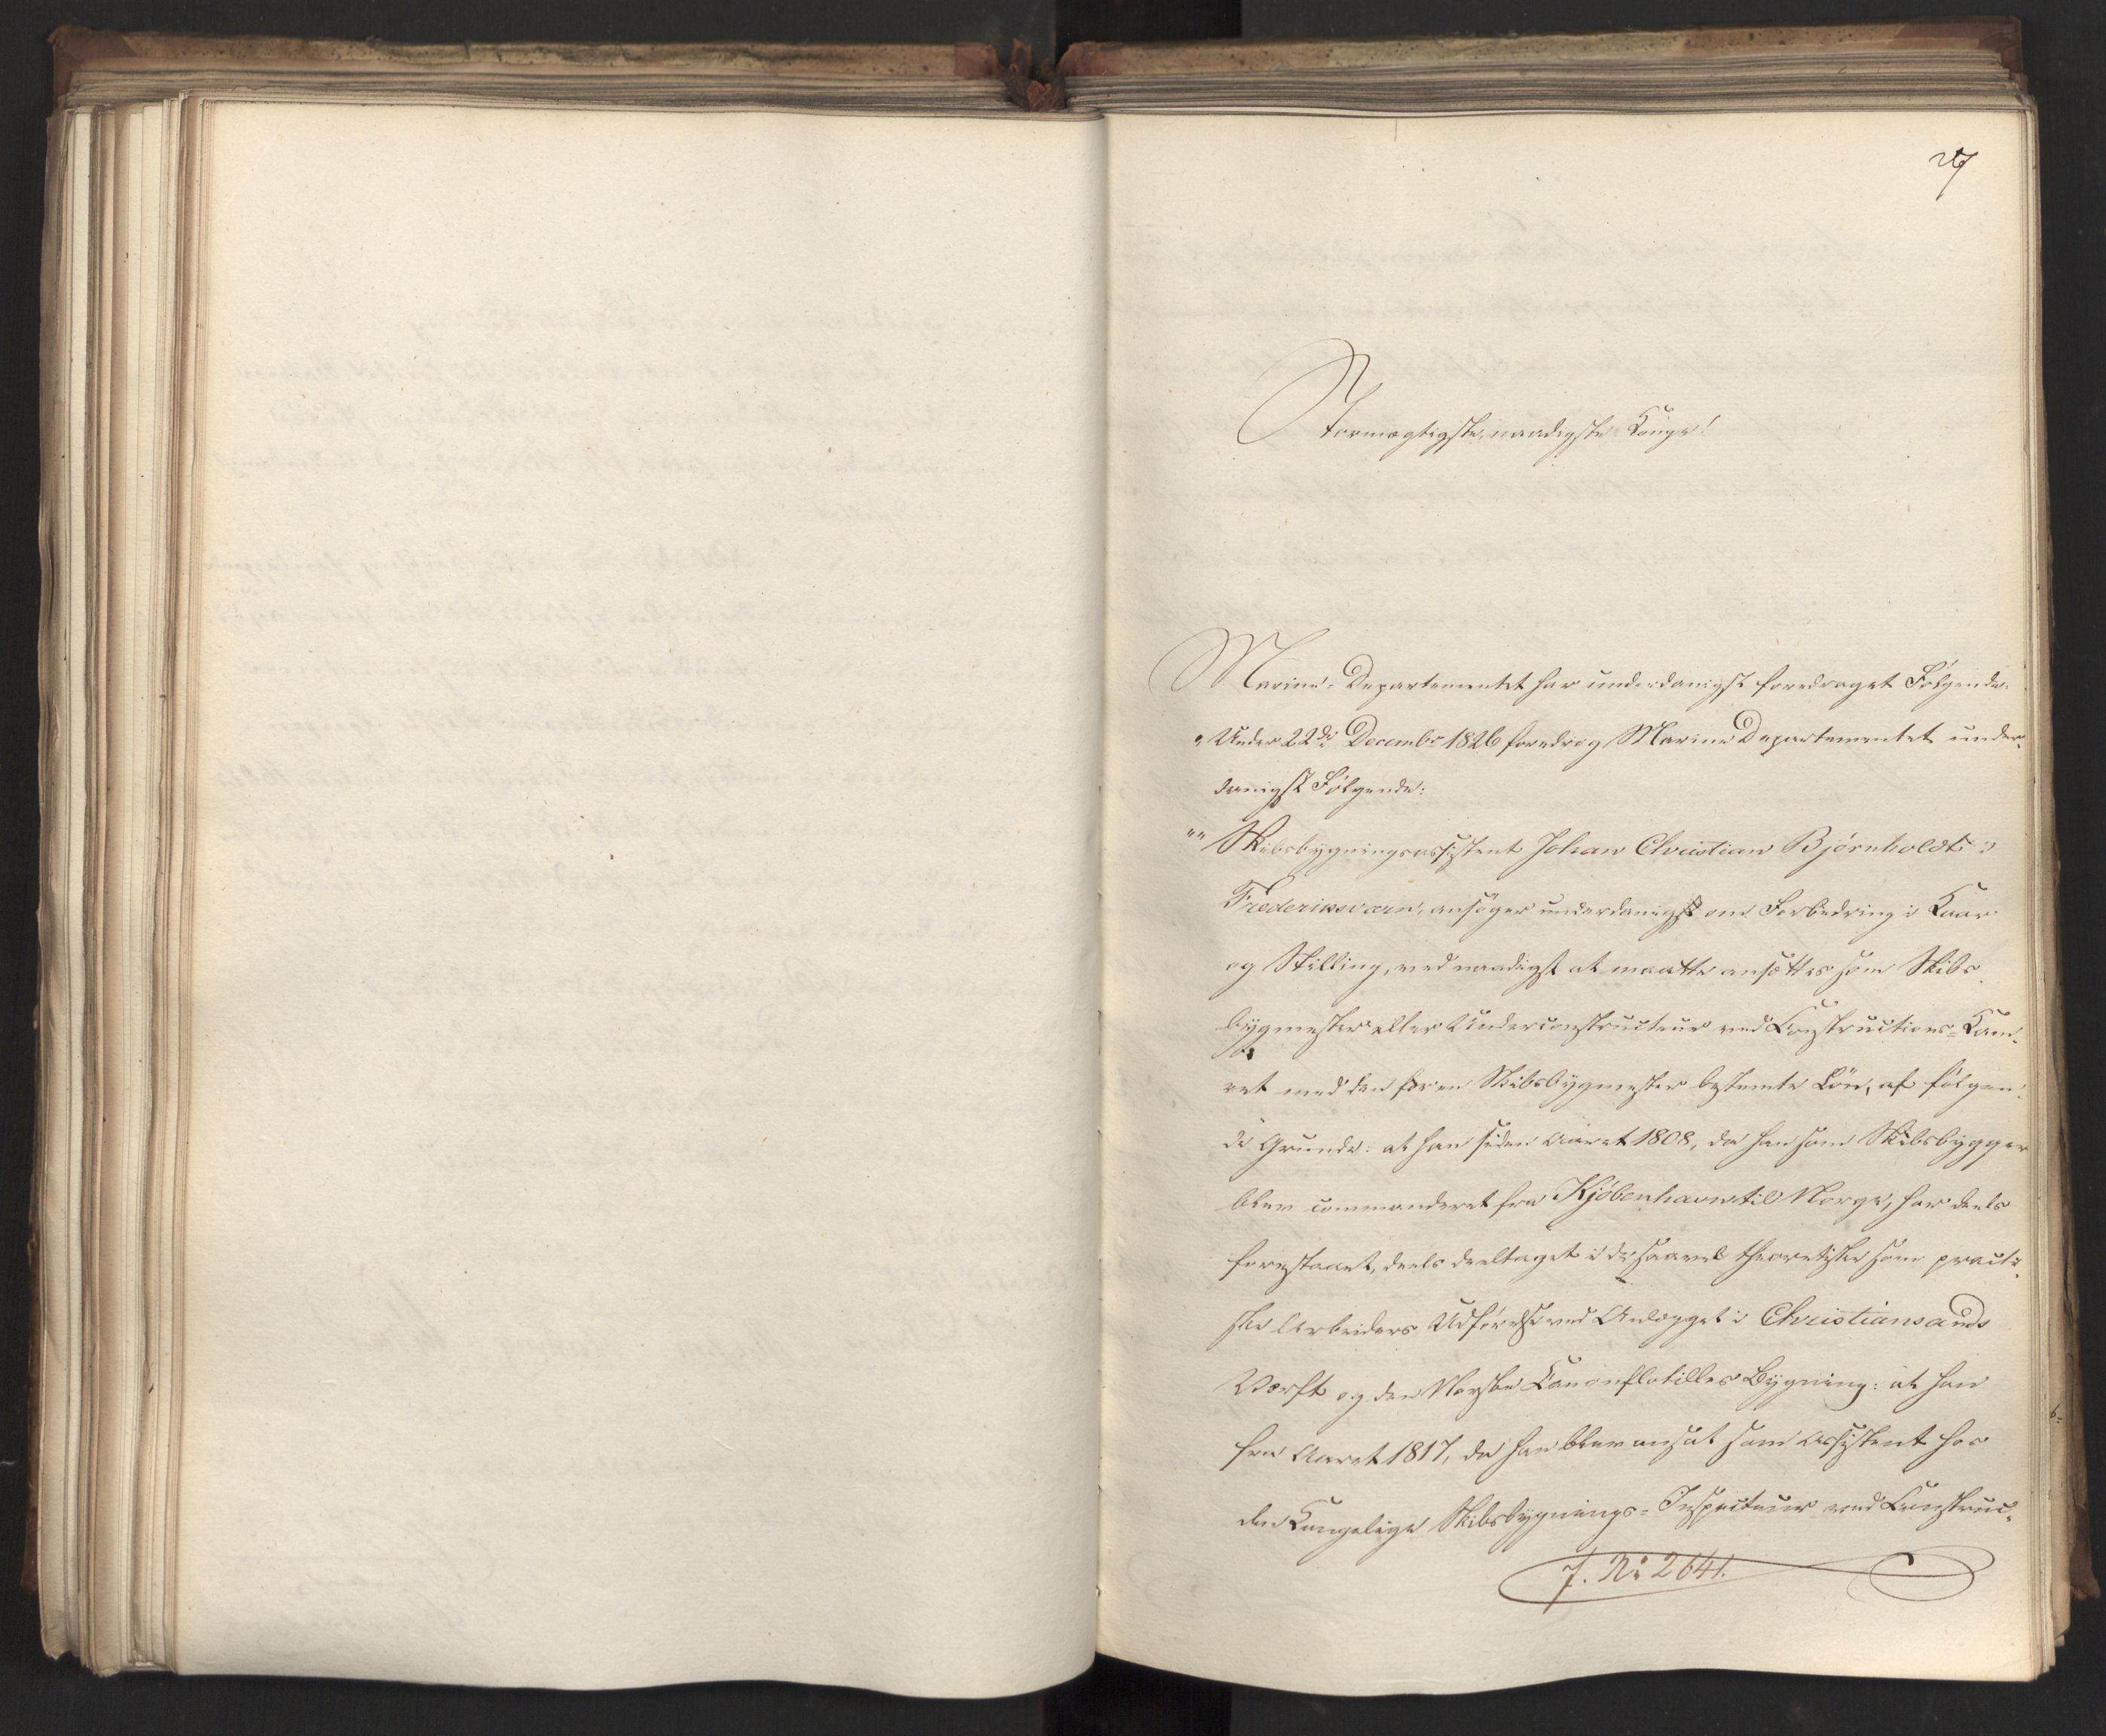 27
Stormægtigste, naadigste Konge!
Marine-Departementet har underdanigst foredraget Følgende:
"Under 22de Decembr 1826 foredrog Marine Departementet under-
danigst Følgende:
"" Skibsbygningsassistent Johan Christian Bjørnholdt i
Frederiksværn, ansøger underdanigst om Forbedring i Kaar
og Stilling, ved naadigst at maatte ansættes som Skibs-
bygmester eller Underconstructeur ved Constructions-Kam-
ret med den for en Skibsbygmester bestemte Løn, af følgen-
de Grunde: at han siden Aaret 1808, da han som Skibsbygger
blev commanderet fra Kjöbenhavn til Norge, har deels
forestaaet, deels deeltaget i de saavel theoretiske som practi-
ske Arbeiders Udførelse ved Anlægget i Christiansands
Værft og den Norske Kanonflotilles Bygning: at han
fra Aaret 1817, da han blev ansat som Assistent hos
den Kongelige Skibsbygnings-Inspecteur ved Construc-
J. No 2641.